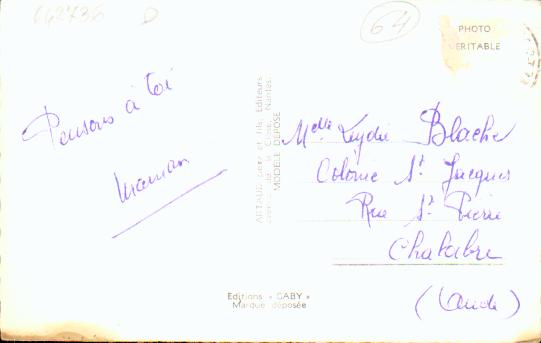 642736
64
PHOTO
VERITABLE
Pensons à toi
maman
ARTAUD, père et fils, Editeurs
Nantes
MODÈLE DÉPOSÉ
Melle Lydie Blache
Colonie St Jacques
Rue St Pierre
Chalabre
(Aude)
Editions « GABY »
Marque déposée